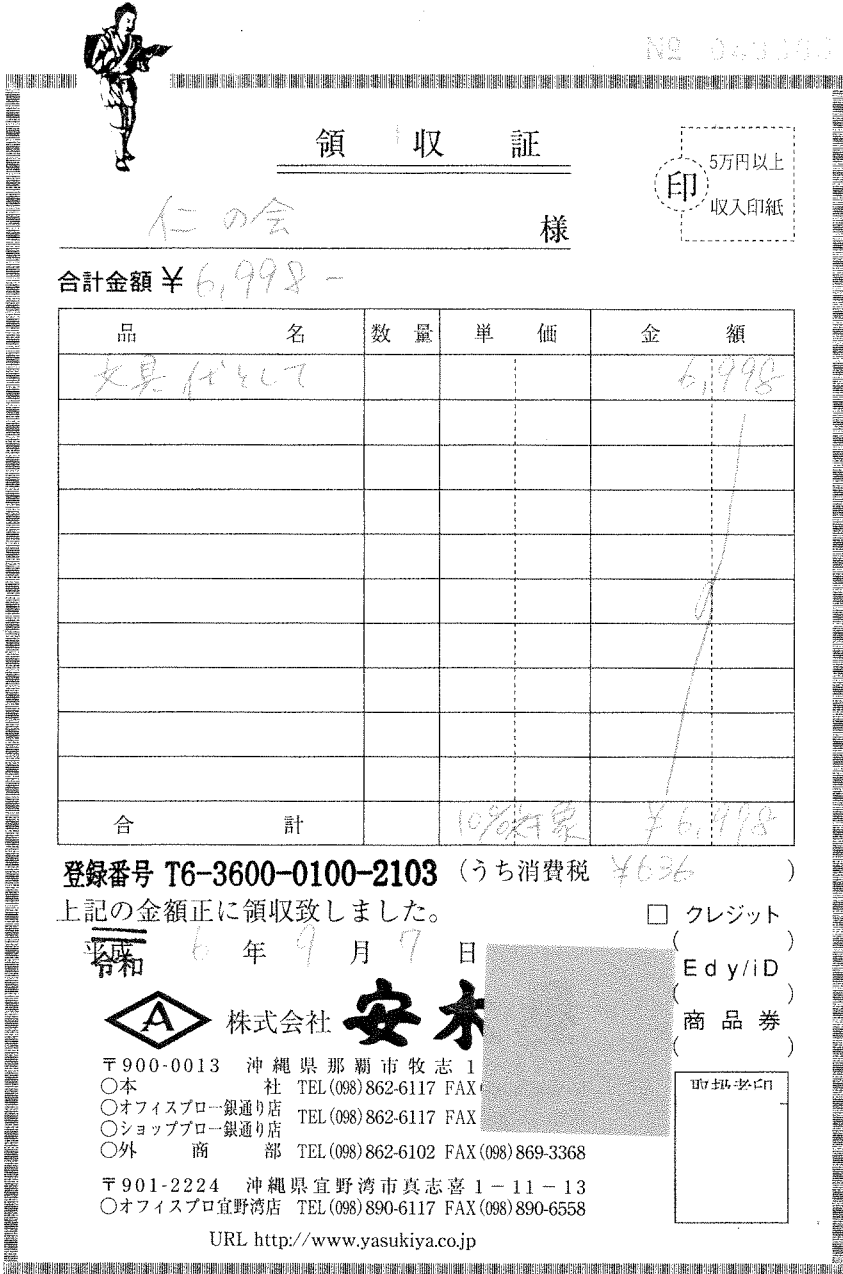 領収証
印
5万円以上
収入印紙
仁の会 様
合計金額 ¥6,998-
品名 数量 単価 金額
文具代として 6,998
合計 10%対象 ¥6,998
登録番号 T6-3600-0100-2103 (うち消費税 ¥636 )
上記の金額正に領収致しました。
平成
令和 6年9月7日
□ クレジット
( )
Edy/iD
( )
商品券
( )
A 株式会社 安木
〒900-0013 沖縄県那覇市牧志1
○本社 TEL(098)862-6117 FAX
○オフィスプロ一銀通り店
○ショッププロ一銀通り店 TEL(098)862-6117 FAX
○外商部 TEL(098)862-6102 FAX(098)869-3368
取扱者印
〒901-2224 沖縄県宜野湾市真志喜1-11-13
○オフィスプロ宜野湾店 TEL(098)890-6117 FAX(098)890-6558
URL http://www.yasukiya.co.jp